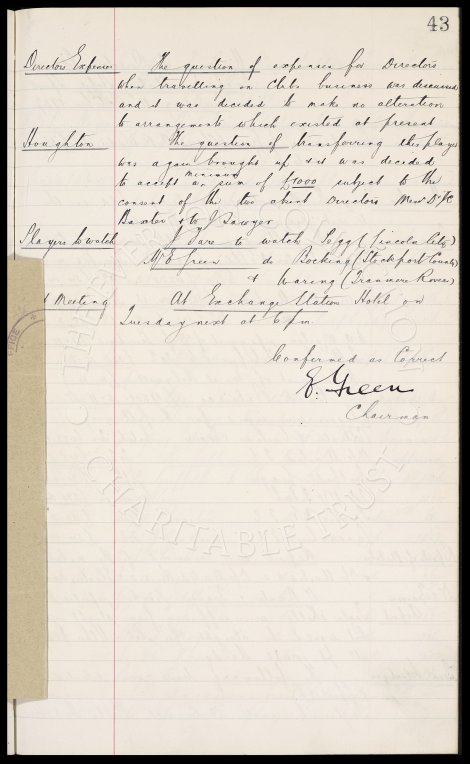 43
Directors Expenses The question of expenses for Directors
when travelling on Clubs business was discussed
and it was decided to make no alteration
to arrangements which existed at present
Houghton The question of transferring this player
was again brought up & it was decided
minimum
to accept a sum of £1000 subject to the
consent of the two absent Directors Messrs Dr JC
Baxter & W J Sawyer
Players to watch J Sare to watch Legg (Lincoln City)
Mr E Green do Bocking (Stockport County)
& Waring (Tranmere Rovers)
Meeting At Exchange Station Hotel on
Tuesday next at 6 pm.
Confirmed as Correct
E. Green
Chairman
CHARITABLE TRUST